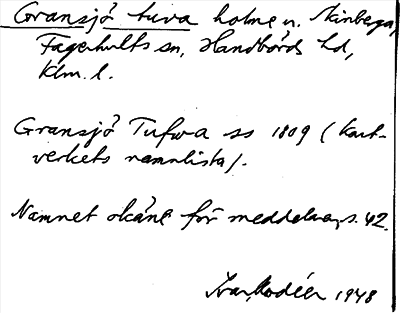 Gransjö tuva holme n. Skinberga,
Fagerhults sn, Handbörds hd,
Klm. l.
Gransjö Tufwa ss 1809 (Kart-
verkets namnlista).
Namnet okänt för meddelarna, s. 42.
Ivar Modéer 1948